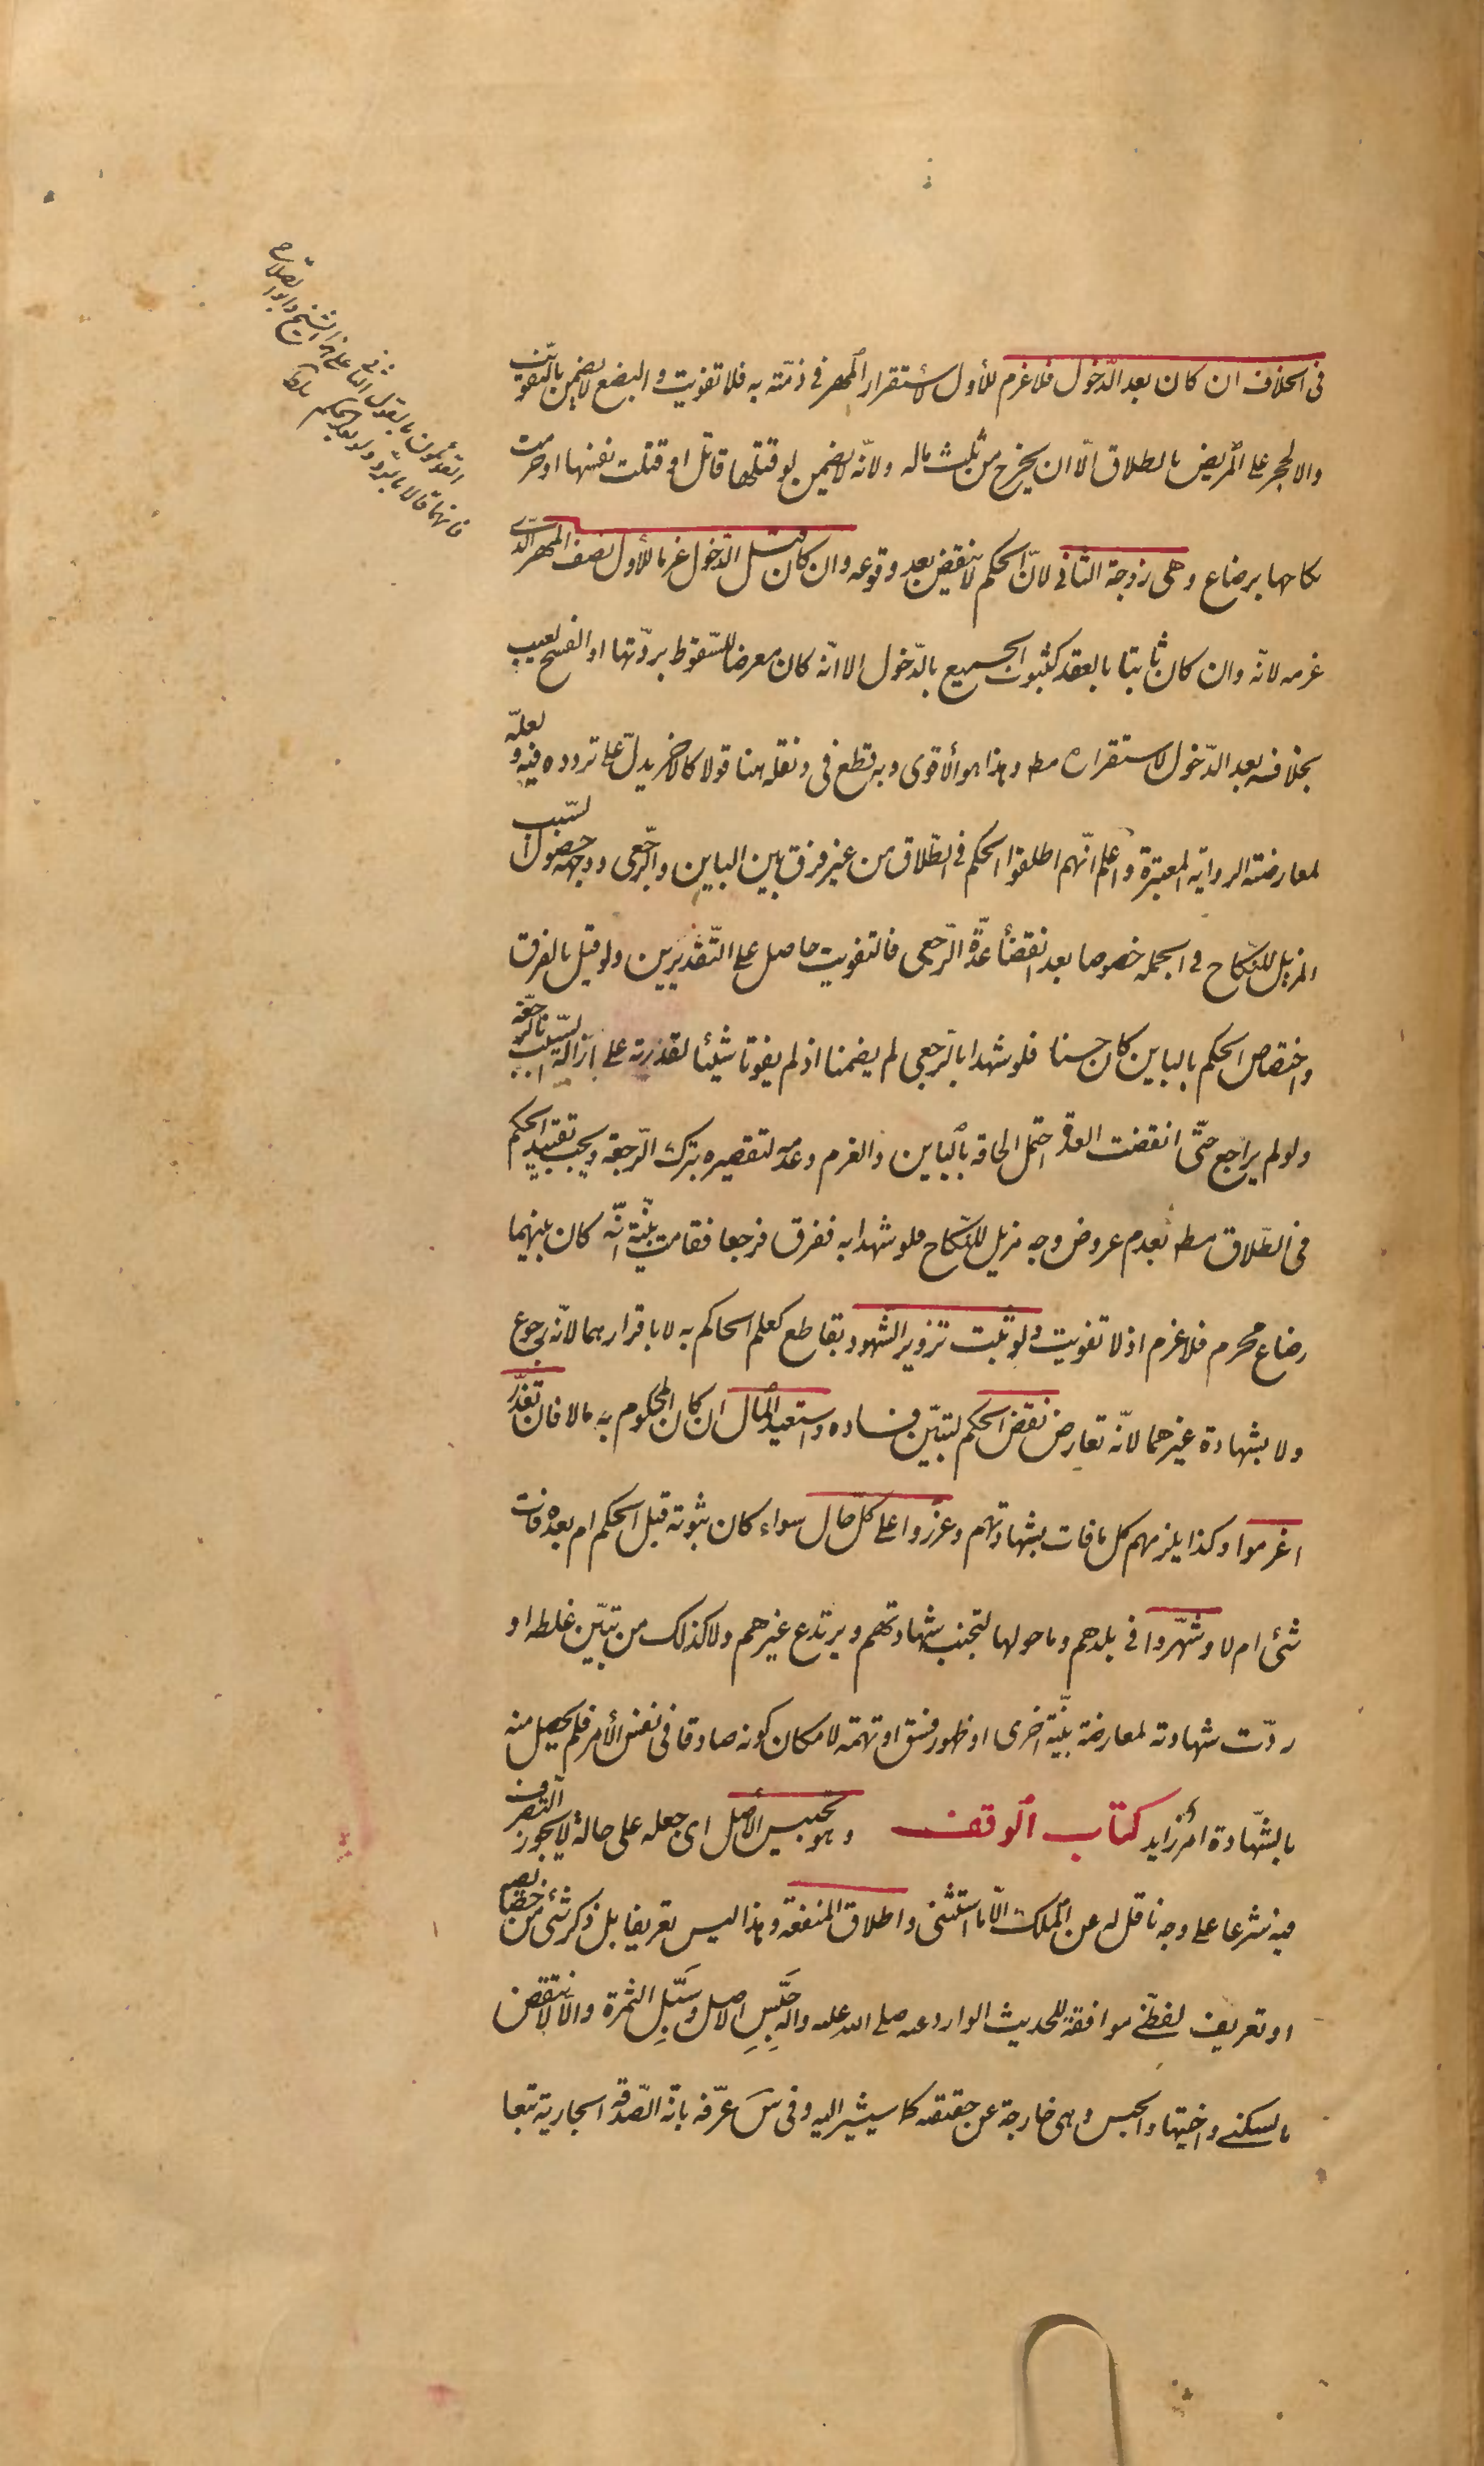 فى الخلاف ان كان بعد الدّخول فلا غرم للأول لاستقرار المهر فى ذمّته به فلا تفويت و البضع لا يضمن بالتفويت
والا لحجر على المريض بالطلاق الّا ان يخرج من ثلث ماله ولانّه لا يضمن لو قتلها قاتل او قتلت نفسها او حرمت
نكاحها برضاع وهى زوجة الثانى لانّ الحكم لا ينقض بعد وقوعه وان كان قبل الدّخول غرما للأول نصف المهر الّذى
غرمه لانّه وان كان ثابتا بالعقد كثبوت الجميع بالدّخول الا انّه كان معرضا للسّقوط بردّتها او الفسخ لعيب
بخلافه بعد الدّخول لاستقراره مط وهذا هو الأقوى وبه قطع فى ونقله هنا قولا كالاخر يدلّ على تردده فيه و لعلّه
لمعارضته الرواية المعتبرة واعلم انّهم اطلقوا الحكم فى الطّلاق من غير فرق بين الباين والرّجعى ووجهه حصول السّبب
المزيل للنّكاح فى الجملة خصوصا بعد انقضأ عدّة الرّجعى فالتفويت حاصل على التّقديرين ولو قيل بالفرق
واختصاص الحكم بالباين كان حسنا فلو شهدا بالرّجعى لم يضمنا اذ لم يفوتا شيئا لقدرته على ازالة السّبب بالرّجعة
ولو لم يراجع حتّى انقضت العدة احتمل الحاقه بالباين والغرم وعدمه لتقصيره بترك الرّجعة ويجب تقييد الحكم
فى الطّلاق مط بعدم عروض وجه مزيل للنّكاح فلو شهدا به ففرق فرجعا فقامت بيّنة انّه كان بينهما
رضاع محرم فلا غرم اذ لا تفويت ولو ثبت تزوير الشهود بقاطع كعلم الحاكم به لا باقرارهما لانّه رجوع
ولا بشهادة غيرهما لانّه تعارض نقض الحكم لتبيّن فساده واستعيد المال ان كان المحكوم به مالا فان تعذّر
اغرموا وكذا يلزمهم كل ما فات بشهادتهم وعزّروا على كلّ حال سواء كان ثبوته قبل الحكم ام بعده فات
شئ ام لا وشهّروا فى بلدهم وما حولها لتجتنب شهادتهم ويرتدع غيرهم ولا كذلك من تبيّن غلطه او
ردّت شهادته لمعارضة بيّنة اخرى او ظهور فسق او تهمة لامكان كونه صادقا فى نفس الأمر فلم يحصل منه
بالشّهادة امر زايد كتاب الوقف وهو تحبيس الأصل اى جعله على حالة لا يجوز التصرف
فيه شرعا على وجه ناقل له عن الملك الّا ما استثنى واطلاق المنفعة وهذا ليس تعريفا بل ذكر شئ من خصايصه
او تعريف لفظىّ موافقة للحديث الوارد عنه صلى الله عليه واله حَبِّسِ الاصل وسَبِّلِ الثمرة والا لانتقض
بالسكنى واختيها والحبس وهى خارجة عن حقيقته كما سيشير اليه وفى س عرّفه بانّه الصّدقة الجارية تبعا
القائلون بالقول الثانى
فانهما قالا بالردّ ولو بعد الحكم